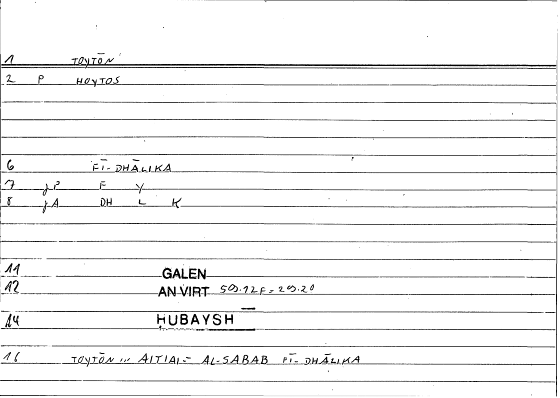 1 TOYTŌN
2 P HOYTOS
6 FĪ-DHĀLIKA
7 jP F Y
8 jA DH L K
11 GALEN
12 AN VIRT 509.12F=29.20
14 ḤUBAYSH
16 TOYTŌN ... AITIAI= AL-SABAB FĪ-DHĀLIKA